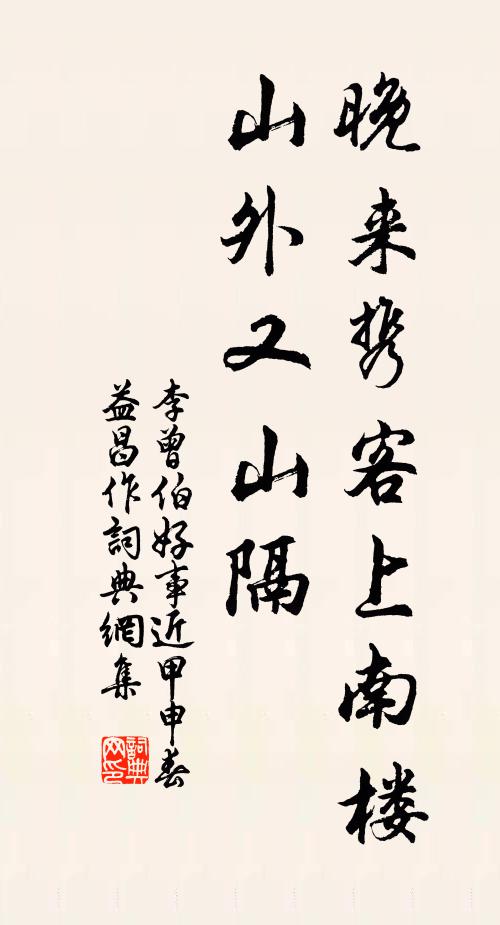 晚来携客上南楼
山外又山隔
李曾伯好事近甲申春
益昌作詞典網集
詞典
网印